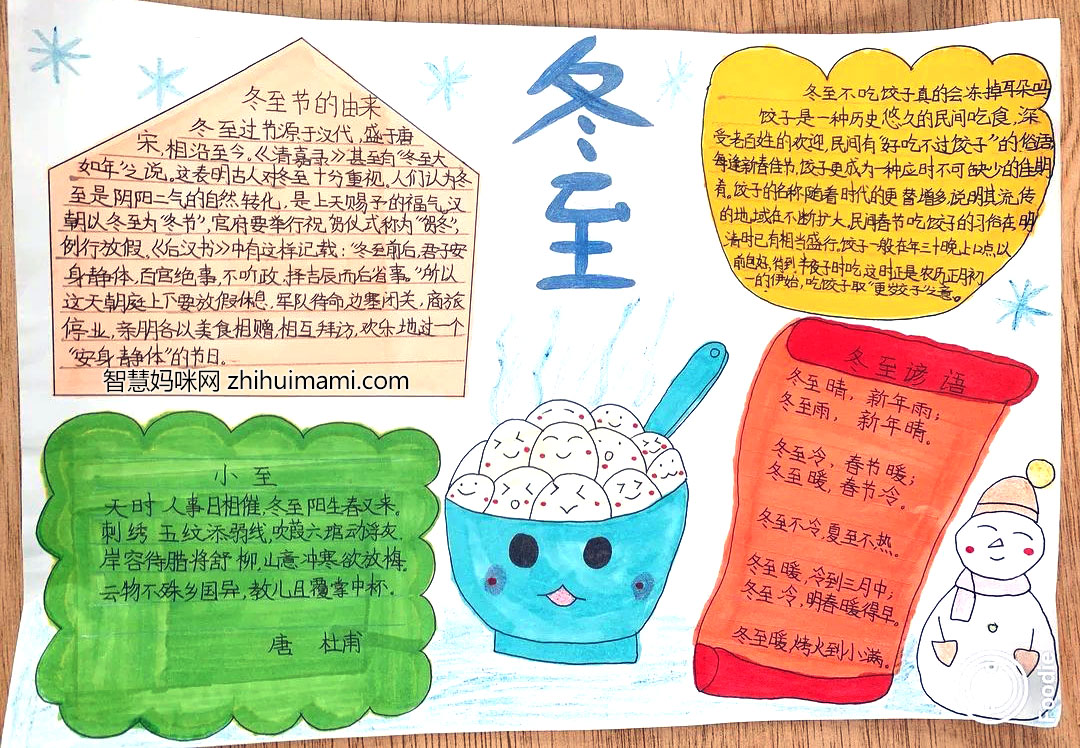 冬至
冬至节的由来
冬至过节源于汉代，盛于唐
宋，相沿至今。《清嘉录》甚至有“冬至大
如年”之说。这表明古人对冬至十分重视。人们认为冬
至是阴阳二气的自然转化，是上天赐予的福气。汉
朝以冬至为“冬节”，官府要举行祝贺仪式称为“贺冬”，
例行放假。《后汉书》中有这样记载：“冬至前后，君子安
身静体，百官绝事，不听政，择吉辰而后省事。”所以
这天朝庭上下要放假休息，军队待命，边塞闭关，商旅
停业，亲朋各以美食相赠，相互拜访，欢乐地过一个
“安身静体”的节日。
智慧妈咪网 zhihuimami.com
冬至不吃饺子真的会冻掉耳朵吗
饺子是一种历史悠久的民间吃食，深
受老百姓的欢迎，民间有“好吃不过饺子”的俗语
每逢新春佳节，饺子更成为一种应时不可缺少的佳肴
有。饺子的名称随着时代的更替增多，说明其流传
的地域在不断扩大。民间春节吃饺子的习俗在明
清时已有相当盛行。饺子一般在年三十晚上12点以
前包好，待到半夜子时吃，这时正是农历正月初
一的伊始，吃饺子取“更岁饺子”之意。
小至
天时人事日相催，冬至阳生春又来。
刺绣五纹添弱线，吹葭六琯动浮灰。
岸容待腊将舒柳，山意冲寒欲放梅。
云物不殊乡国异，教儿且覆掌中杯。
唐 杜甫
冬至谚语
冬至晴，新年雨；
冬至雨，新年晴。
冬至冷，春节暖；
冬至暖，春节冷。
冬至不冷，夏至不热。
冬至暖，冷到三月中；
冬至冷，明春暖得早。
冬至暖，烤火到小满。
foodie